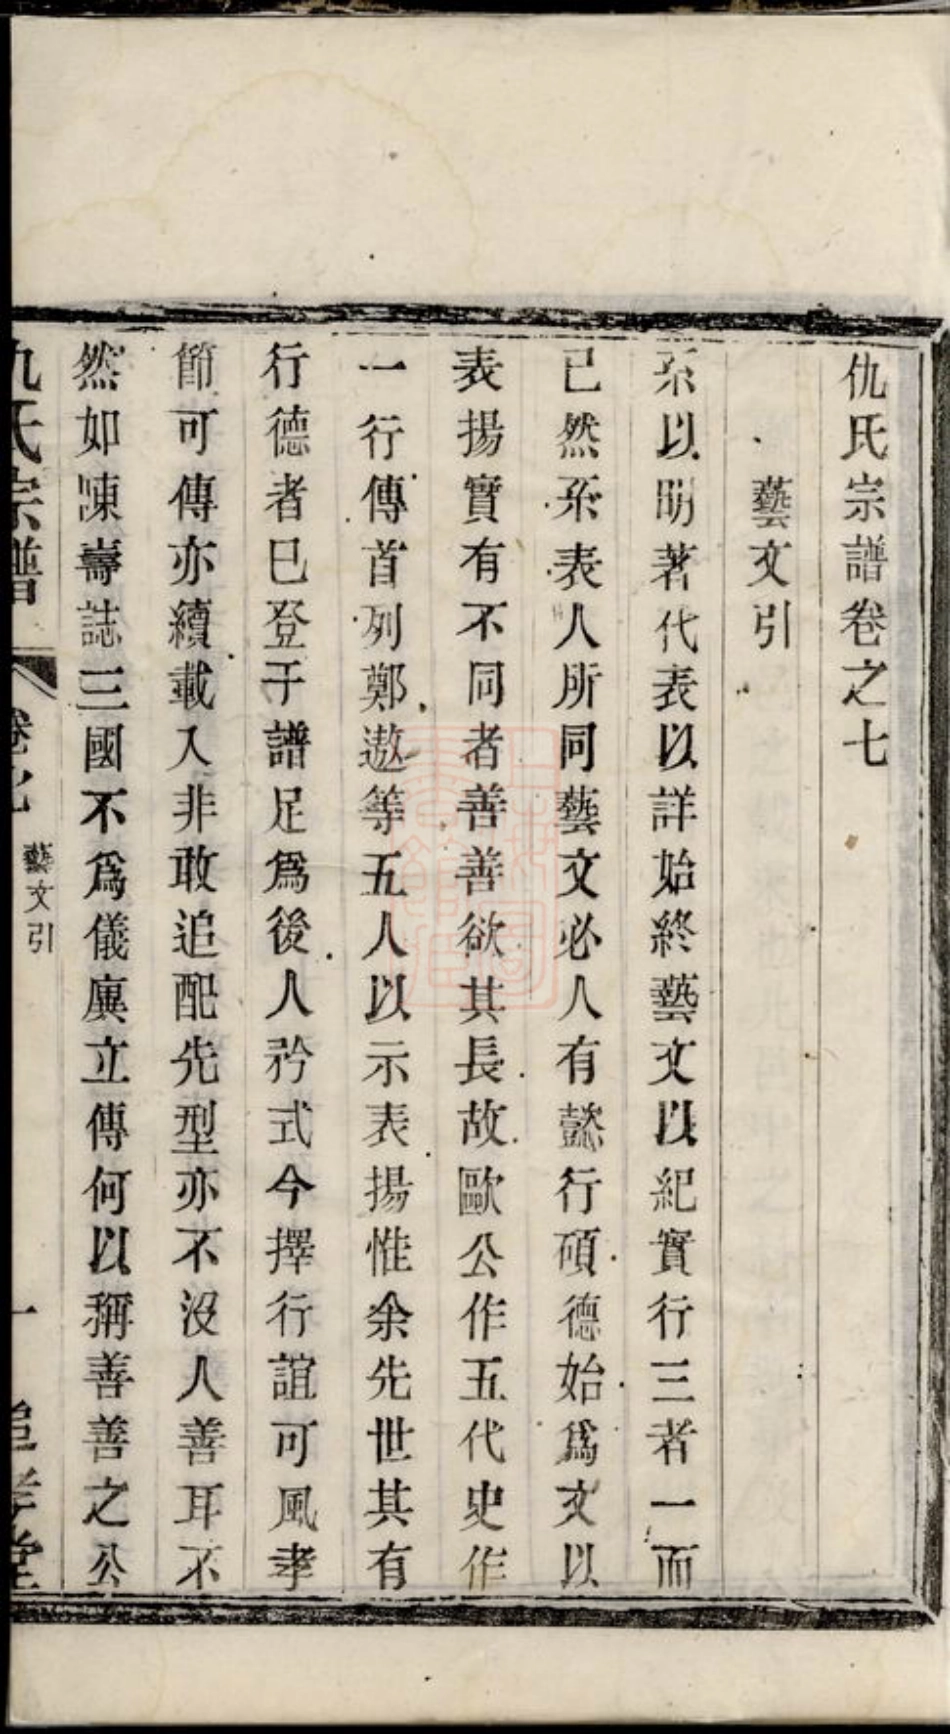 仇氏宗譜卷之七
藝文引
系以明著代表以詳始終藝文以紀實行三者一而
已然系表人所同藝文必人有懿行碩德始爲文以
表揚實有不同者善善欲其長故歐公作五代史作
一行傳首列鄭遨等五人以示表揚惟余先世其有
行德者已登于譜足爲後人矜式今擇行誼可風孝
節可傳亦續載入非敢追配先型亦不沒人善耳不
然如陳壽誌三國不爲儀廙立傳何以稱善善之公
仇氏宗譜
卷七
藝文引
一
堂